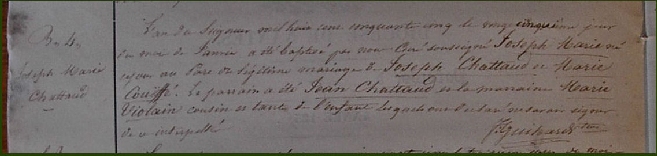 B. 4.
Joseph Marie
Chattaud
L'an du Seigneur mil huit cent cinquante cinq le vingt cinquième jour
du mois de Janvier a été baptisé par nous Curé soussigné Joseph Marie né
ce jour au Parc de légitime mariage de Joseph Chattaud et Marie
Couiffé. Le parrain a été Jean Chattaud et la marraine Marie
Violain cousin et tante de l'enfant lesquels ont déclaré ne savoir signer
de ce interpellés